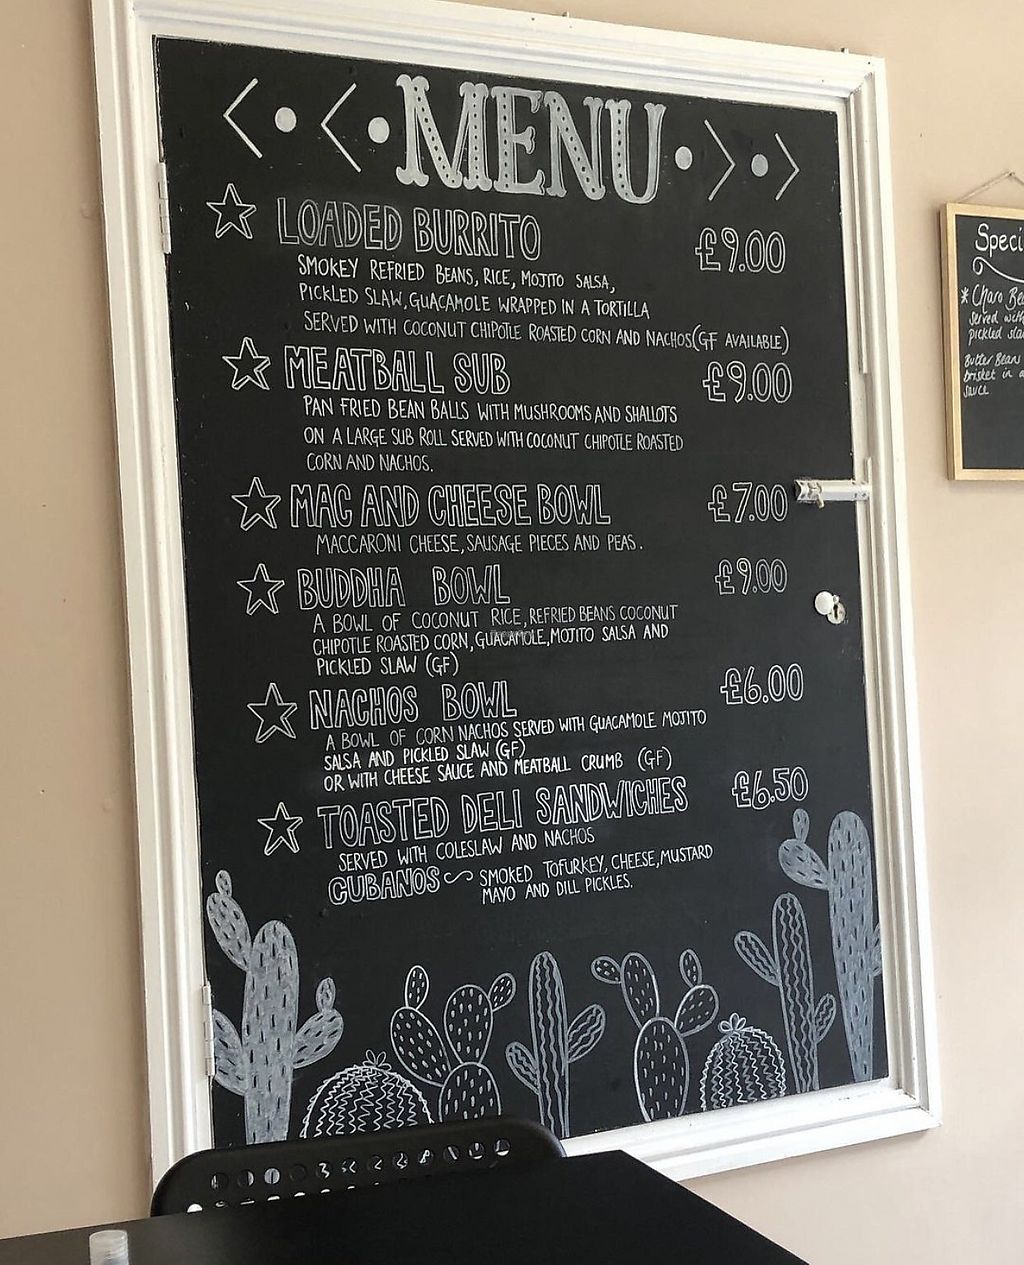 MENU
LOADED BURRITO £9.00
SMOKEY REFRIED BEANS, RICE, MOJITO SALSA,
PICKLED SLAW, GUACAMOLE WRAPPED IN A TORTILLA
SERVED WITH COCONUT CHIPOTLE ROASTED CORN AND NACHOS (GF AVAILABLE)
MEATBALL SUB £9.00
PAN FRIED BEAN BALLS WITH MUSHROOMS AND SHALLOTS
ON A LARGE SUB ROLL SERVED WITH COCONUT CHIPOTLE ROASTED
CORN AND NACHOS.
MAC AND CHEESE BOWL £7.00
MACCARONI CHEESE, SAUSAGE PIECES AND PEAS.
BUDDHA BOWL £9.00
A BOWL OF COCONUT RICE, REFRIED BEANS COCONUT
CHIPOTLE ROASTED CORN, GUACAMOLE, MOJITO SALSA AND
PICKLED SLAW (GF)
NACHOS BOWL £6.00
A BOWL OF CORN NACHOS SERVED WITH GUACAMOLE MOJITO
SALSA AND PICKLED SLAW (GF)
OR WITH CHEESE SAUCE AND MEATBALL CRUMB (GF)
TOASTED DELI SANDWICHES £6.50
SERVED WITH COLESLAW AND NACHOS
CUBANOS ~ SMOKED TOFURKEY, CHEESE, MUSTARD
MAYO AND DILL PICKLES.
Speci
* Charo Be
Served with
pickled sla
Butter Beans
brisket in a
sauce